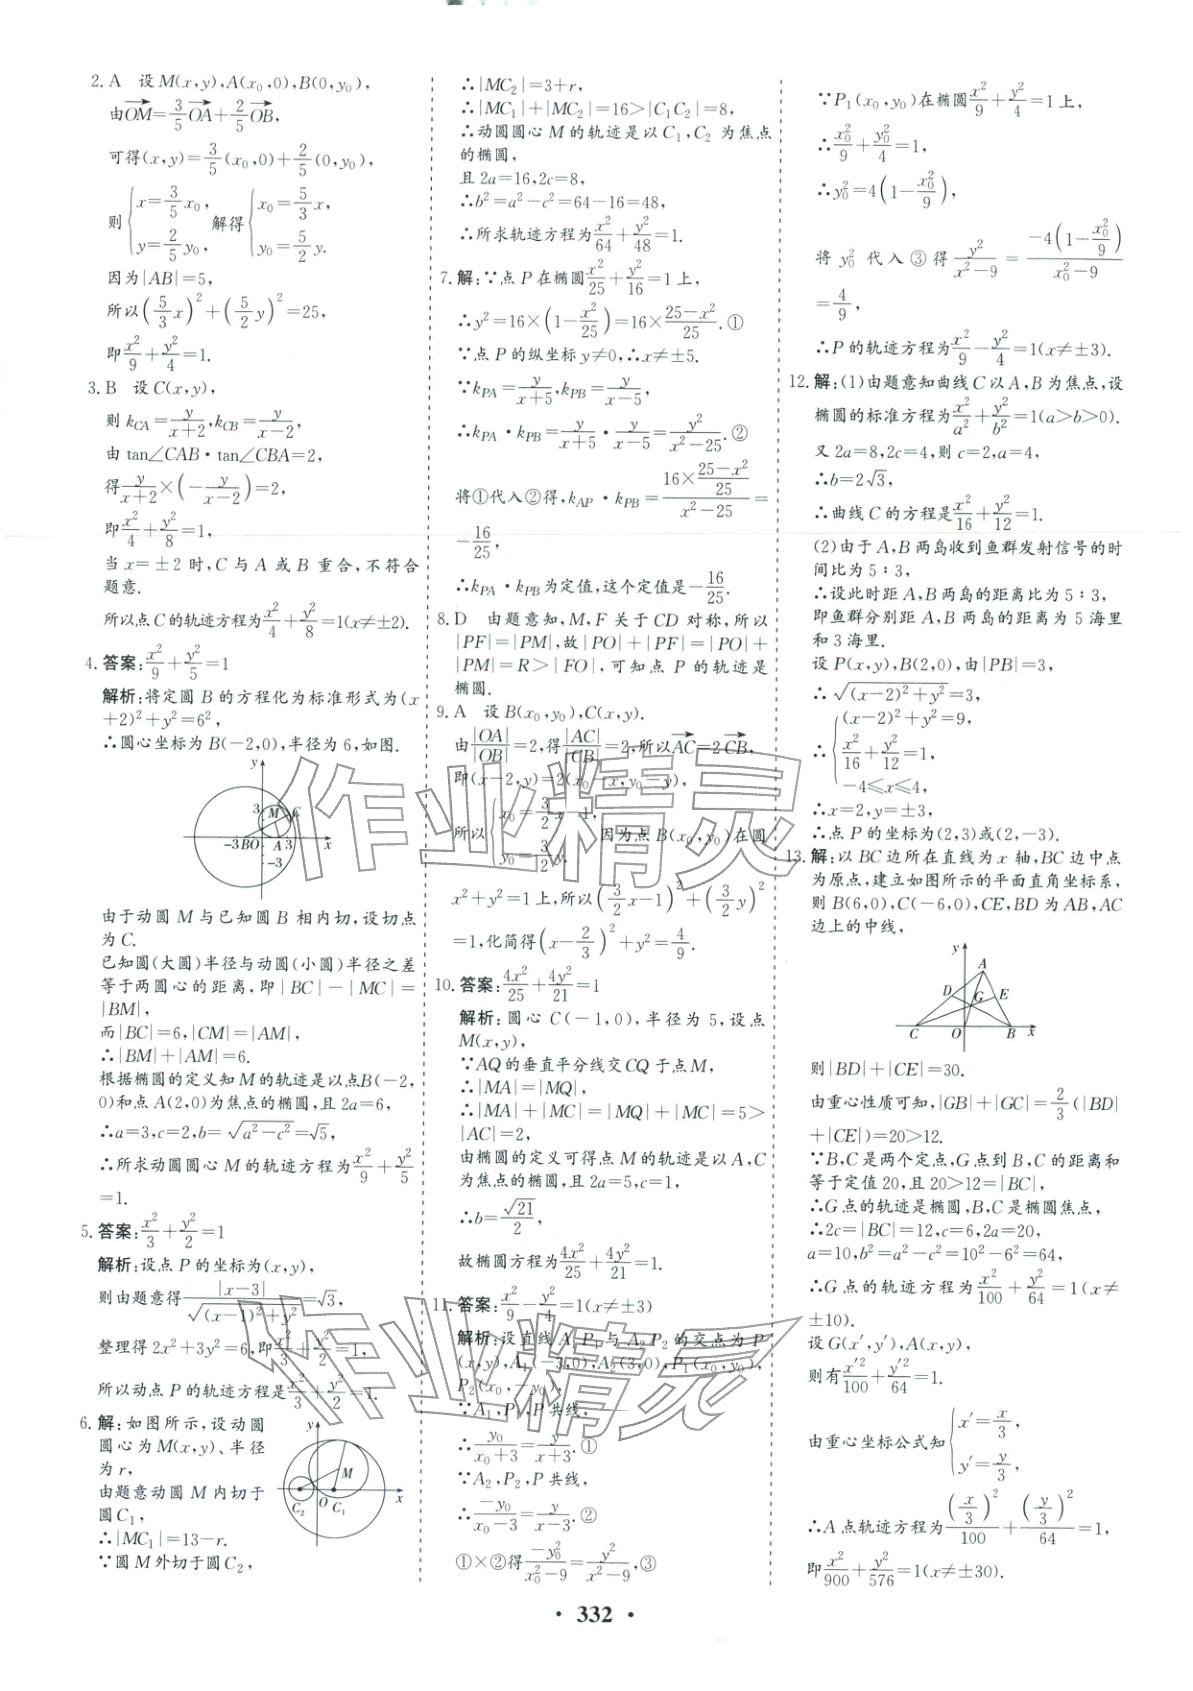 2. A 设 M(x,y),A(x₀,0),B(0,y₀),
由$\overrightarrow{OM}=\frac{3}{5}\overrightarrow{OA}+\frac{2}{5}\overrightarrow{OB}$,
可得(x,y)=$\frac{3}{5}$(x₀,0)+$\frac{2}{5}$(0,y₀),
则$\begin{cases}x=\frac{3}{5}x_0,\\y=\frac{2}{5}y_0,\end{cases}$解得$\begin{cases}x_0=\frac{5}{3}x,\\y_0=\frac{5}{2}y.\end{cases}$
因为|AB|=5,
所以$\left(\frac{5}{3}x\right)^2+\left(\frac{5}{2}y\right)^2=25$,
即$\frac{x^2}{9}+\frac{y^2}{4}=1$.
3. B 设 C(x,y),
则 $k_{CA}=\frac{y}{x+2},k_{CB}=\frac{y}{x-2}$,
由 tan∠CAB·tan∠CBA=2,
得$\frac{y}{x+2}\times\left(-\frac{y}{x-2}\right)=2$,
即$\frac{x^2}{4}+\frac{y^2}{8}=1$,
当 x=±2 时,C 与 A 或 B 重合,不符合
题意.
所以点 C 的轨迹方程为$\frac{x^2}{4}+\frac{y^2}{8}=1(x≠±2)$.
4. 答案:$\frac{x^2}{9}+\frac{y^2}{5}=1$
解析:将定圆 B 的方程化为标准形式为(x
+2)²+y²=6²,
∴圆心坐标为 B(-2,0),半径为 6,如图.
y
3 M C
-3 B O A 3 x
-3
由于动圆 M 与已知圆 B 相内切,设切点
为 C.
已知圆(大圆)半径与动圆(小圆)半径之差
等于两圆心的距离,即|BC|-|MC|=
|BM|,
而|BC|=6,|CM|=|AM|,
∴|BM|+|AM|=6.
根据椭圆的定义知 M 的轨迹是以点 B(-2,
0)和点 A(2,0)为焦点的椭圆,且 2a=6,
∴a=3,c=2,b=$\sqrt{a^2-c^2}=\sqrt{5}$,
∴所求动圆圆心 M 的轨迹方程为$\frac{x^2}{9}+\frac{y^2}{5}$
=1.
5. 答案:$\frac{x^2}{3}+\frac{y^2}{2}=1$
解析:设点 P 的坐标为(x,y),
则由题意得$\frac{|x-3|}{\sqrt{(x-1)^2+y^2}}=\sqrt{3}$,
整理得 2x²+3y²=6,即$\frac{x^2}{3}+\frac{y^2}{2}=1$,
所以动点 P 的轨迹方程是$\frac{x^2}{3}+\frac{y^2}{2}=1$.
6. 解:如图所示,设动圆
圆心为 M(x,y)、半径
为 r,
由题意动圆 M 内切于
圆 C₁,
∴|MC₁|=13-r.
∵圆 M 外切于圆 C₂,
y
M
C₂ O C₁ x
∴|MC₂|=3+r,
∴|MC₁|+|MC₂|=16>|C₁C₂|=8,
∴动圆圆心 M 的轨迹是以 C₁,C₂ 为焦点
的椭圆,
且 2a=16,2c=8,
∴b²=a²-c²=64-16=48,
∴所求轨迹方程为$\frac{x^2}{64}+\frac{y^2}{48}=1$.
7. 解:∵点 P 在椭圆$\frac{x^2}{25}+\frac{y^2}{16}=1$上,
∴$y^2=16\times\left(1-\frac{x^2}{25}\right)=16\times\frac{25-x^2}{25}$.①
∵点 P 的纵坐标 y≠0,∴x≠±5.
∵$k_{PA}=\frac{y}{x+5},k_{PB}=\frac{y}{x-5}$,
∴$k_{PA}·k_{PB}=\frac{y}{x+5}·\frac{y}{x-5}=\frac{y^2}{x^2-25}$.②
将①代入②得,$k_{AP}·k_{PB}=\frac{16\times\frac{25-x^2}{25}}{x^2-25}=$
$-\frac{16}{25}$,
∴$k_{PA}·k_{PB}$为定值,这个定值是$-\frac{16}{25}$.
8. D 由题意知,M,F 关于 CD 对称,所以
|PF|=|PM|,故|PO|+|PF|=|PO|+
|PM|=R>|FO|,可知点 P 的轨迹是
椭圆.
9. A 设 B(x₀,y₀),C(x,y).
由$\frac{|OA|}{|OB|}=2$,得$\frac{|AC|}{|CB|}=2$,所以$\overrightarrow{AC}=2\overrightarrow{CB}$,
即(x-2,y)=2(x₀-x,y₀-y),
所以$\begin{cases}x_0=\frac{3}{2}x-1,\\y_0=\frac{3}{2}y.\end{cases}$因为点 B(x₀,y₀)在圆
x²+y²=1 上,所以$\left(\frac{3}{2}x-1\right)^2+\left(\frac{3}{2}y\right)^2$
=1,化简得$\left(x-\frac{2}{3}\right)^2+y^2=\frac{4}{9}$.
10. 答案:$\frac{4x^2}{25}+\frac{4y^2}{21}=1$
解析:圆心 C(-1,0),半径为 5,设点
M(x,y),
∵AQ 的垂直平分线交 CQ 于点 M,
∴|MA|=|MQ|,
∴|MA|+|MC|=|MQ|+|MC|=5>
|AC|=2,
由椭圆的定义可得点 M 的轨迹是以 A,C
为焦点的椭圆,且 2a=5,c=1,
∴b=$\frac{\sqrt{21}}{2}$,
故椭圆方程为$\frac{4x^2}{25}+\frac{4y^2}{21}=1$.
11. 答案:$\frac{x^2}{9}-\frac{y^2}{4}=1(x≠±3)$
解析:设直线 A₁P₁ 与 A₂P₂ 的交点为 P
(x,y),A₁(-3,0),A₂(3,0),P₁(x₀,y₀),
P₂(x₀,-y₀).
∵A₁,P₁,P 共线,
∴$\frac{y_0}{x_0+3}=\frac{y}{x+3}$.①
∵A₂,P₂,P 共线,
∴$\frac{-y_0}{x_0-3}=\frac{y}{x-3}$.②
①×②得$\frac{-y_0^2}{x_0^2-9}=\frac{y^2}{x^2-9}$,③
∵P₁(x₀,y₀)在椭圆$\frac{x^2}{9}+\frac{y^2}{4}=1$上,
∴$\frac{x_0^2}{9}+\frac{y_0^2}{4}=1$,
∴$y_0^2=4\left(1-\frac{x_0^2}{9}\right)$,
将 $y_0^2$ 代入③得$\frac{y^2}{x^2-9}=\frac{-4\left(1-\frac{x_0^2}{9}\right)}{x_0^2-9}$
$=\frac{4}{9}$,
∴P 的轨迹方程为$\frac{x^2}{9}-\frac{y^2}{4}=1(x≠±3)$.
12. 解:(1)由题意知曲线 C 以 A,B 为焦点,设
椭圆的标准方程为$\frac{x^2}{a^2}+\frac{y^2}{b^2}=1(a>b>0)$.
又 2a=8,2c=4,则 c=2,a=4,
∴b=2$\sqrt{3}$,
∴曲线 C 的方程是$\frac{x^2}{16}+\frac{y^2}{12}=1$.
(2)由于 A,B 两岛收到鱼群发射信号的时
间比为 5∶3,
∴设此时距 A,B 两岛的距离比为 5∶3,
即鱼群分别距 A,B 两岛的距离为 5 海里
和 3 海里.
设 P(x,y),B(2,0),由|PB|=3,
∴$\sqrt{(x-2)^2+y^2}=3$,
∴$\begin{cases}(x-2)^2+y^2=9,\\\frac{x^2}{16}+\frac{y^2}{12}=1,\\-4≤x≤4,\end{cases}$
∴x=2,y=±3,
∴点 P 的坐标为(2,3)或(2,-3).
13. 解:以 BC 边所在直线为 x 轴,BC 边中点
为原点,建立如图所示的平面直角坐标系,
则 B(6,0),C(-6,0),CE,BD 为 AB,AC
边上的中线,
y
A
D G E
C O B x
则|BD|+|CE|=30.
由重心性质可知,|GB|+|GC|=$\frac{2}{3}$(|BD|
+|CE|)=20>12.
∵B,C 是两个定点,G 点到 B,C 的距离和
等于定值 20,且 20>12=|BC|,
∴G 点的轨迹是椭圆,B,C 是椭圆焦点,
∴2c=|BC|=12,c=6,2a=20,
a=10,b²=a²-c²=10²-6²=64,
∴G 点的轨迹方程为$\frac{x^2}{100}+\frac{y^2}{64}=1(x≠$
±10).
设 G(x′,y′),A(x,y),
则有$\frac{x'^2}{100}+\frac{y'^2}{64}=1$.
由重心坐标公式知$\begin{cases}x'=\frac{x}{3},\\y'=\frac{y}{3},\end{cases}$
∴A 点轨迹方程为$\frac{\left(\frac{x}{3}\right)^2}{100}+\frac{\left(\frac{y}{3}\right)^2}{64}=1$,
即$\frac{x^2}{900}+\frac{y^2}{576}=1(x≠±30)$.
· 332 ·
作业精灵
作业精灵